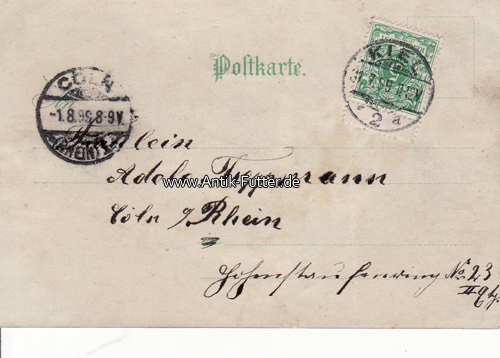 KIEL
Postkarte.
CÖLN
-1.8.99.8-9V.
2 a
Fräulein
Adele
www.Antik-Futter.de
Cöln a/Rhein
Hohenstaufenring No. 23
II